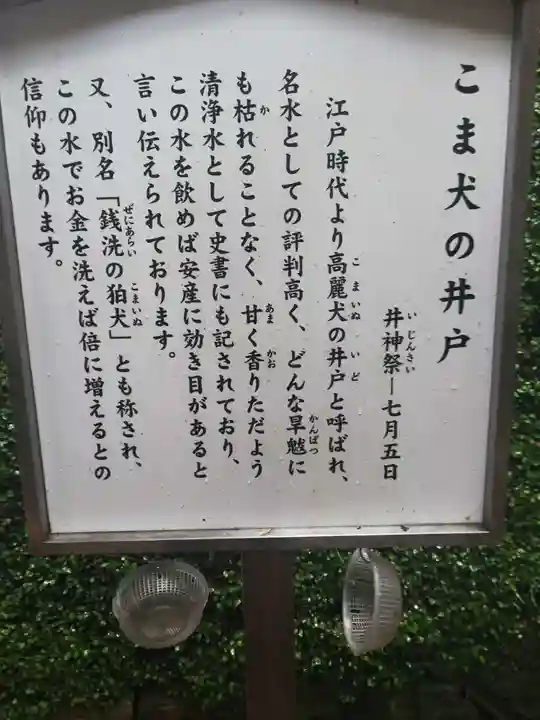 こま犬の井戸
井神祭ー七月五日
江戸時代より高麗犬の井戸と呼ばれ、
名水としての評判高く、どんな旱魃に
も枯れることなく、甘く香りただよう
清浄水として史書にも記されており、
この水を飲めば安産に効き目があると
言い伝えられております。
又、別名「銭洗の狛犬」とも称され、
この水でお金を洗えば倍に増えるとの
信仰もあります。